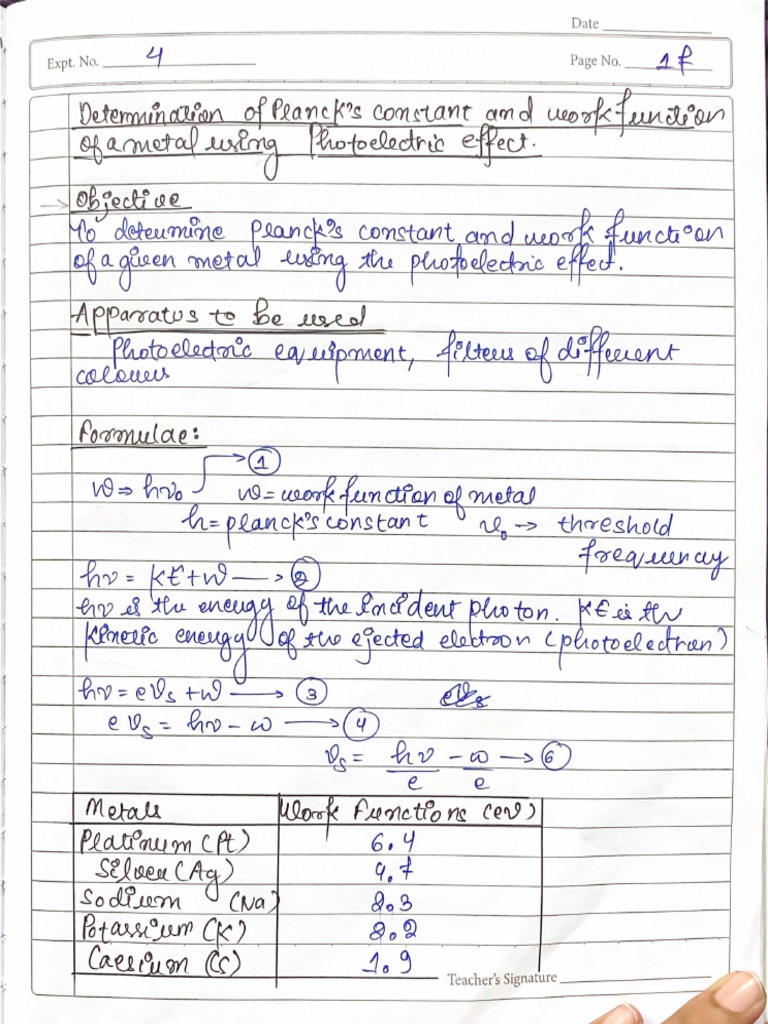 Date
Expt. No. 4
Page No. 17
Determination of Planck's constant and work function
of a metal using Photoelectric effect.
Objective
To determine Planck's constant and work function
of a given metal using the photoelectric effect.
Apparatus to be used
Photoelectric equipment, filters of different
colours
Formulae:
①
w ⇒ hν₀ w = work function of metal
h = planck's constant ν₀ → threshold
frequency
hν = KE + W → ②
hν is the energy of the incident photon. KE is the
kinetic energy of the ejected electron (photoelectron)
hν = eVs + W → ③
eVs = hν - w → ④
Vs = hν/e - w/e → ⑥
Metals Work Functions (eV)
Platinum (Pt) 6.4
Silver (Ag) 4.7
Sodium (Na) 2.3
Potassium (K) 2.2
Caesium (Cs) 1.9
Teacher's Signature